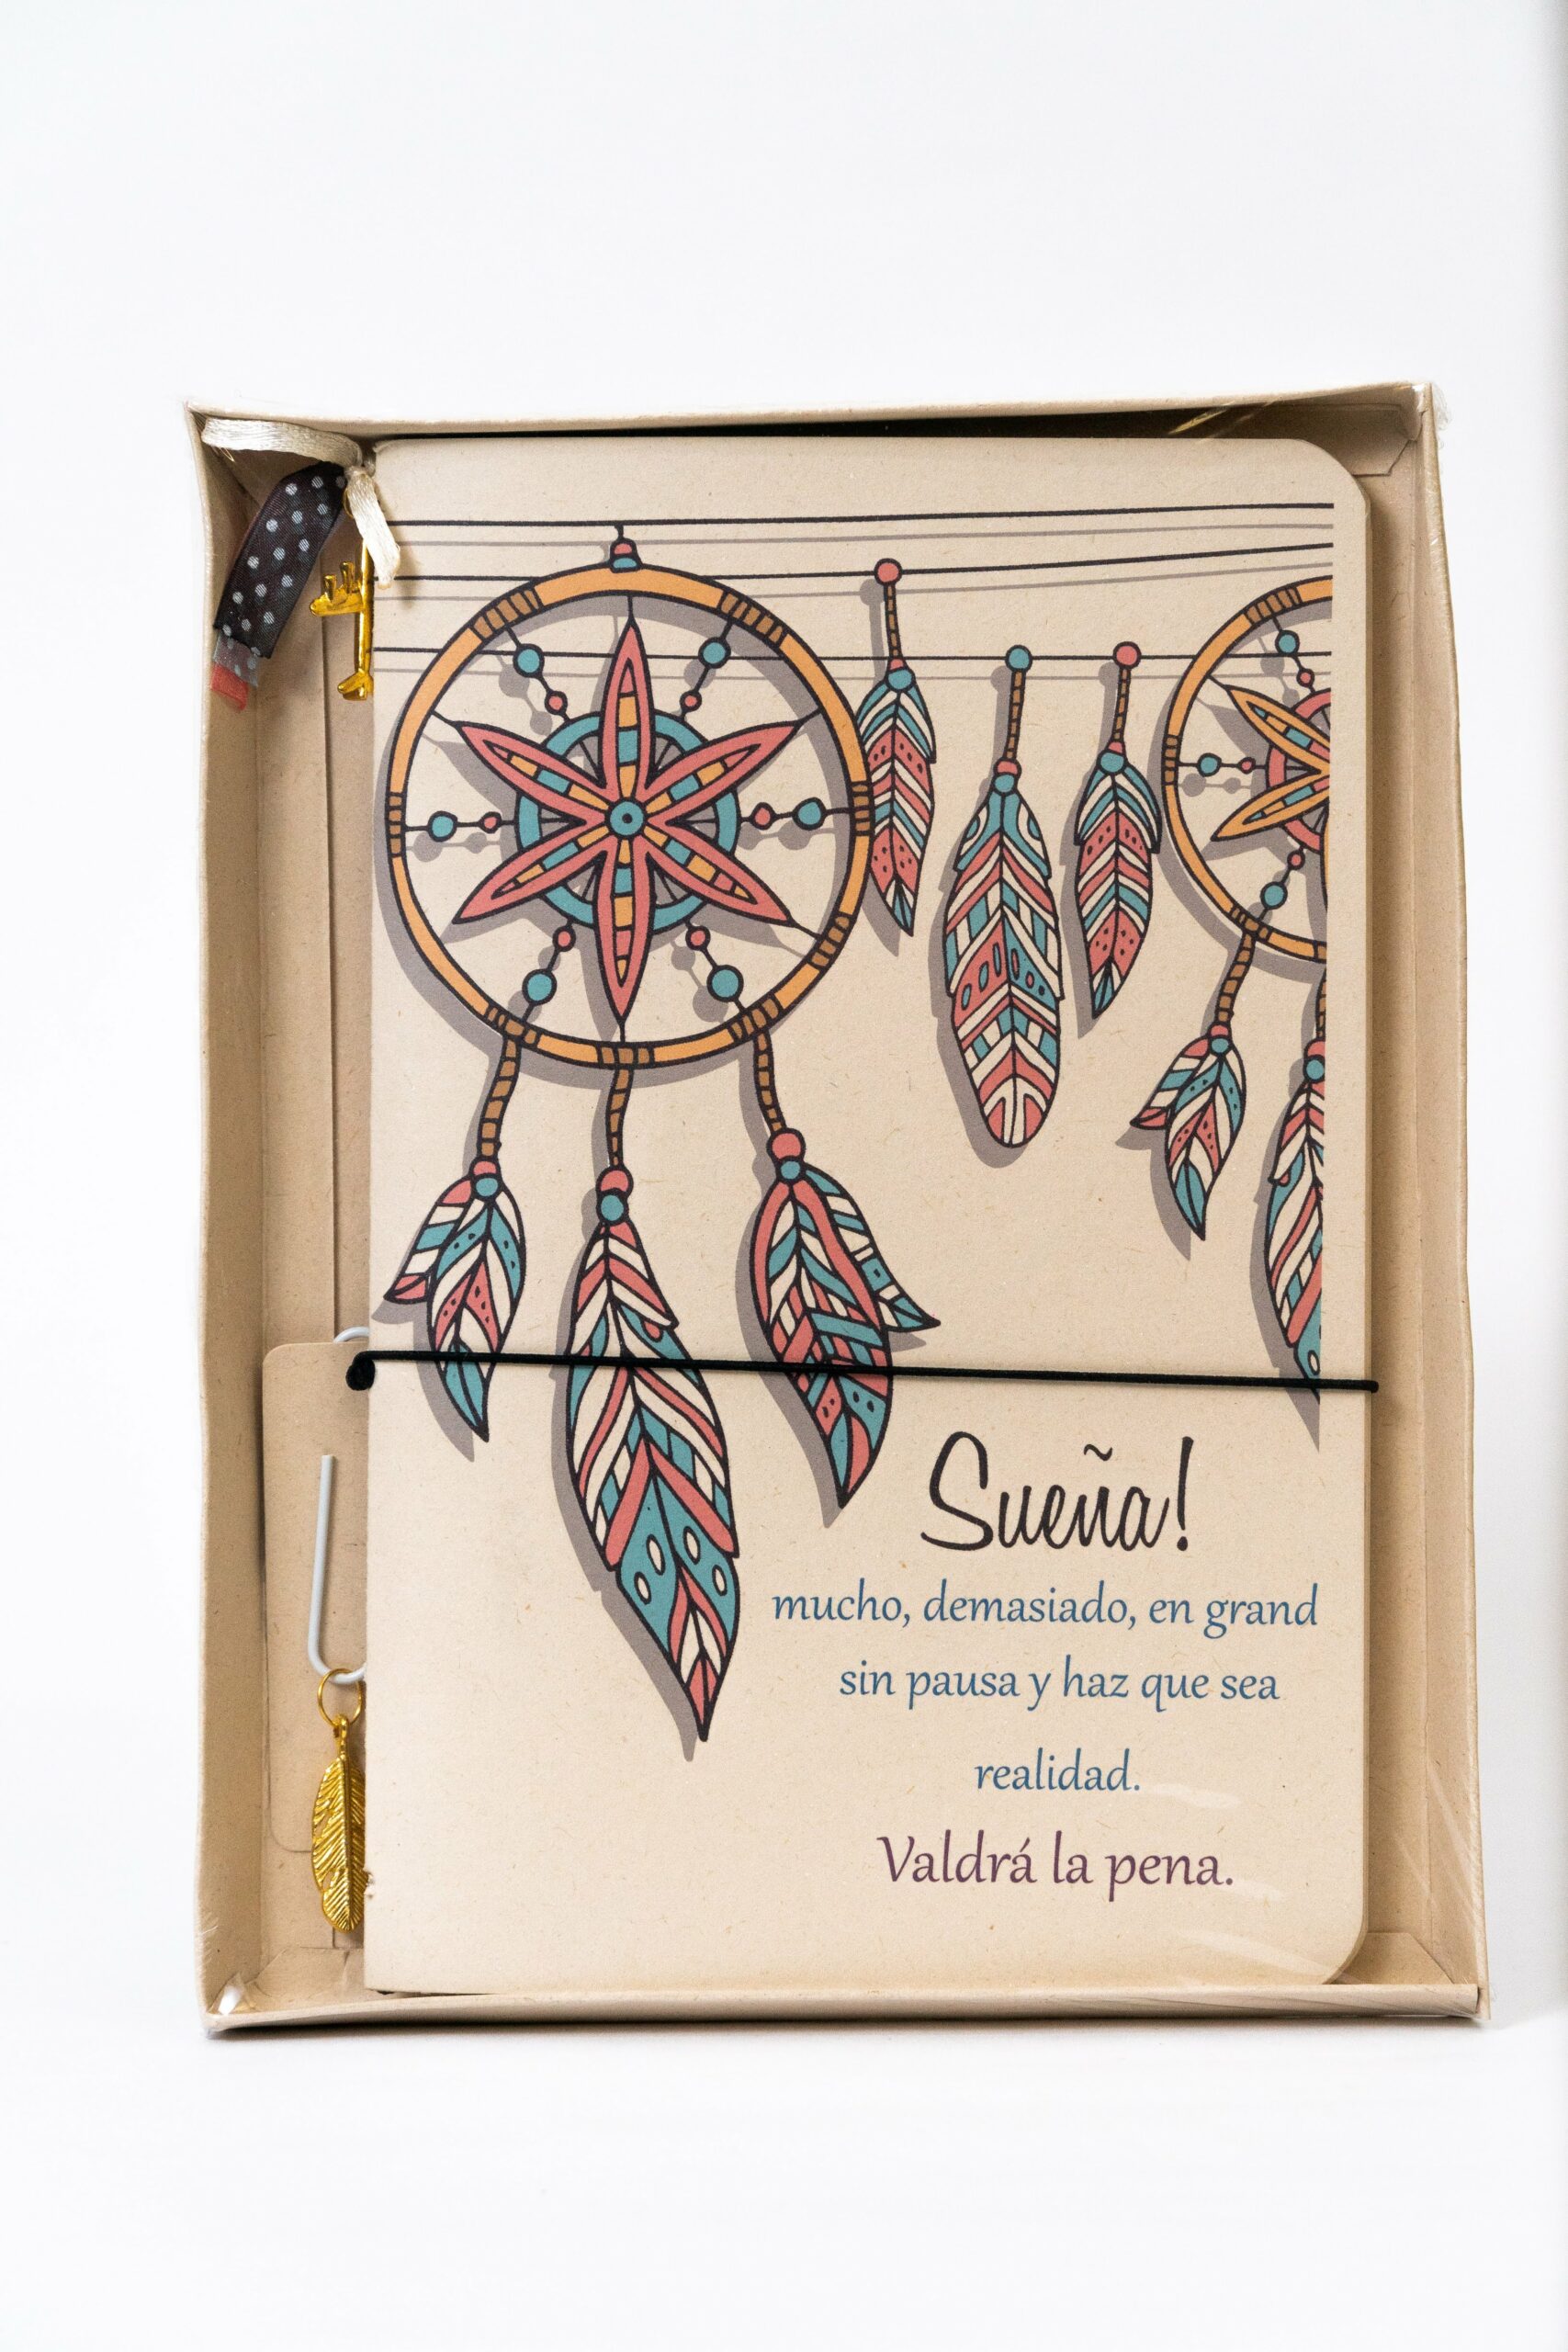 Sueña!
mucho, demasiado, en grand
sin pausa y haz que sea
realidad.
Valdrá la pena.